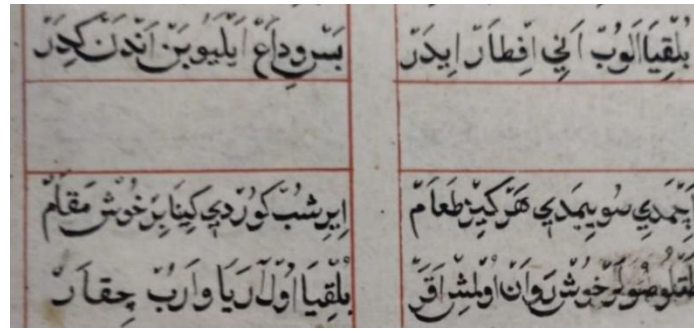 بُلْقِيَا اَلُوبْ اَنِي اِفْطَارْ اِيدَرْ بَسْ وِدَاعْ اَيْلَيُوبَنْ اَنْدَنْ كِدَرْ
اِچْمَدِي سُو يِيمَدِي هَرْكِيزْ طَعَامْ اِيرِشُبْ كُورْدِي كِينَا بِرْ خُوشْ مَقَامْ
صُولَرْ خُوشْ رَوَانْ اُولْمِشْ اَقَرْ بُلْقِيَا اُولْ آرَيَا وَارُبْ چِقَارْ